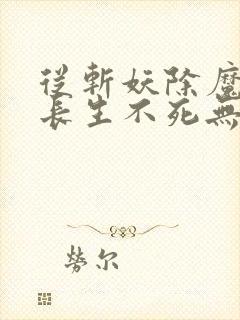 從斬妖除魔
長生不死無
勞尔